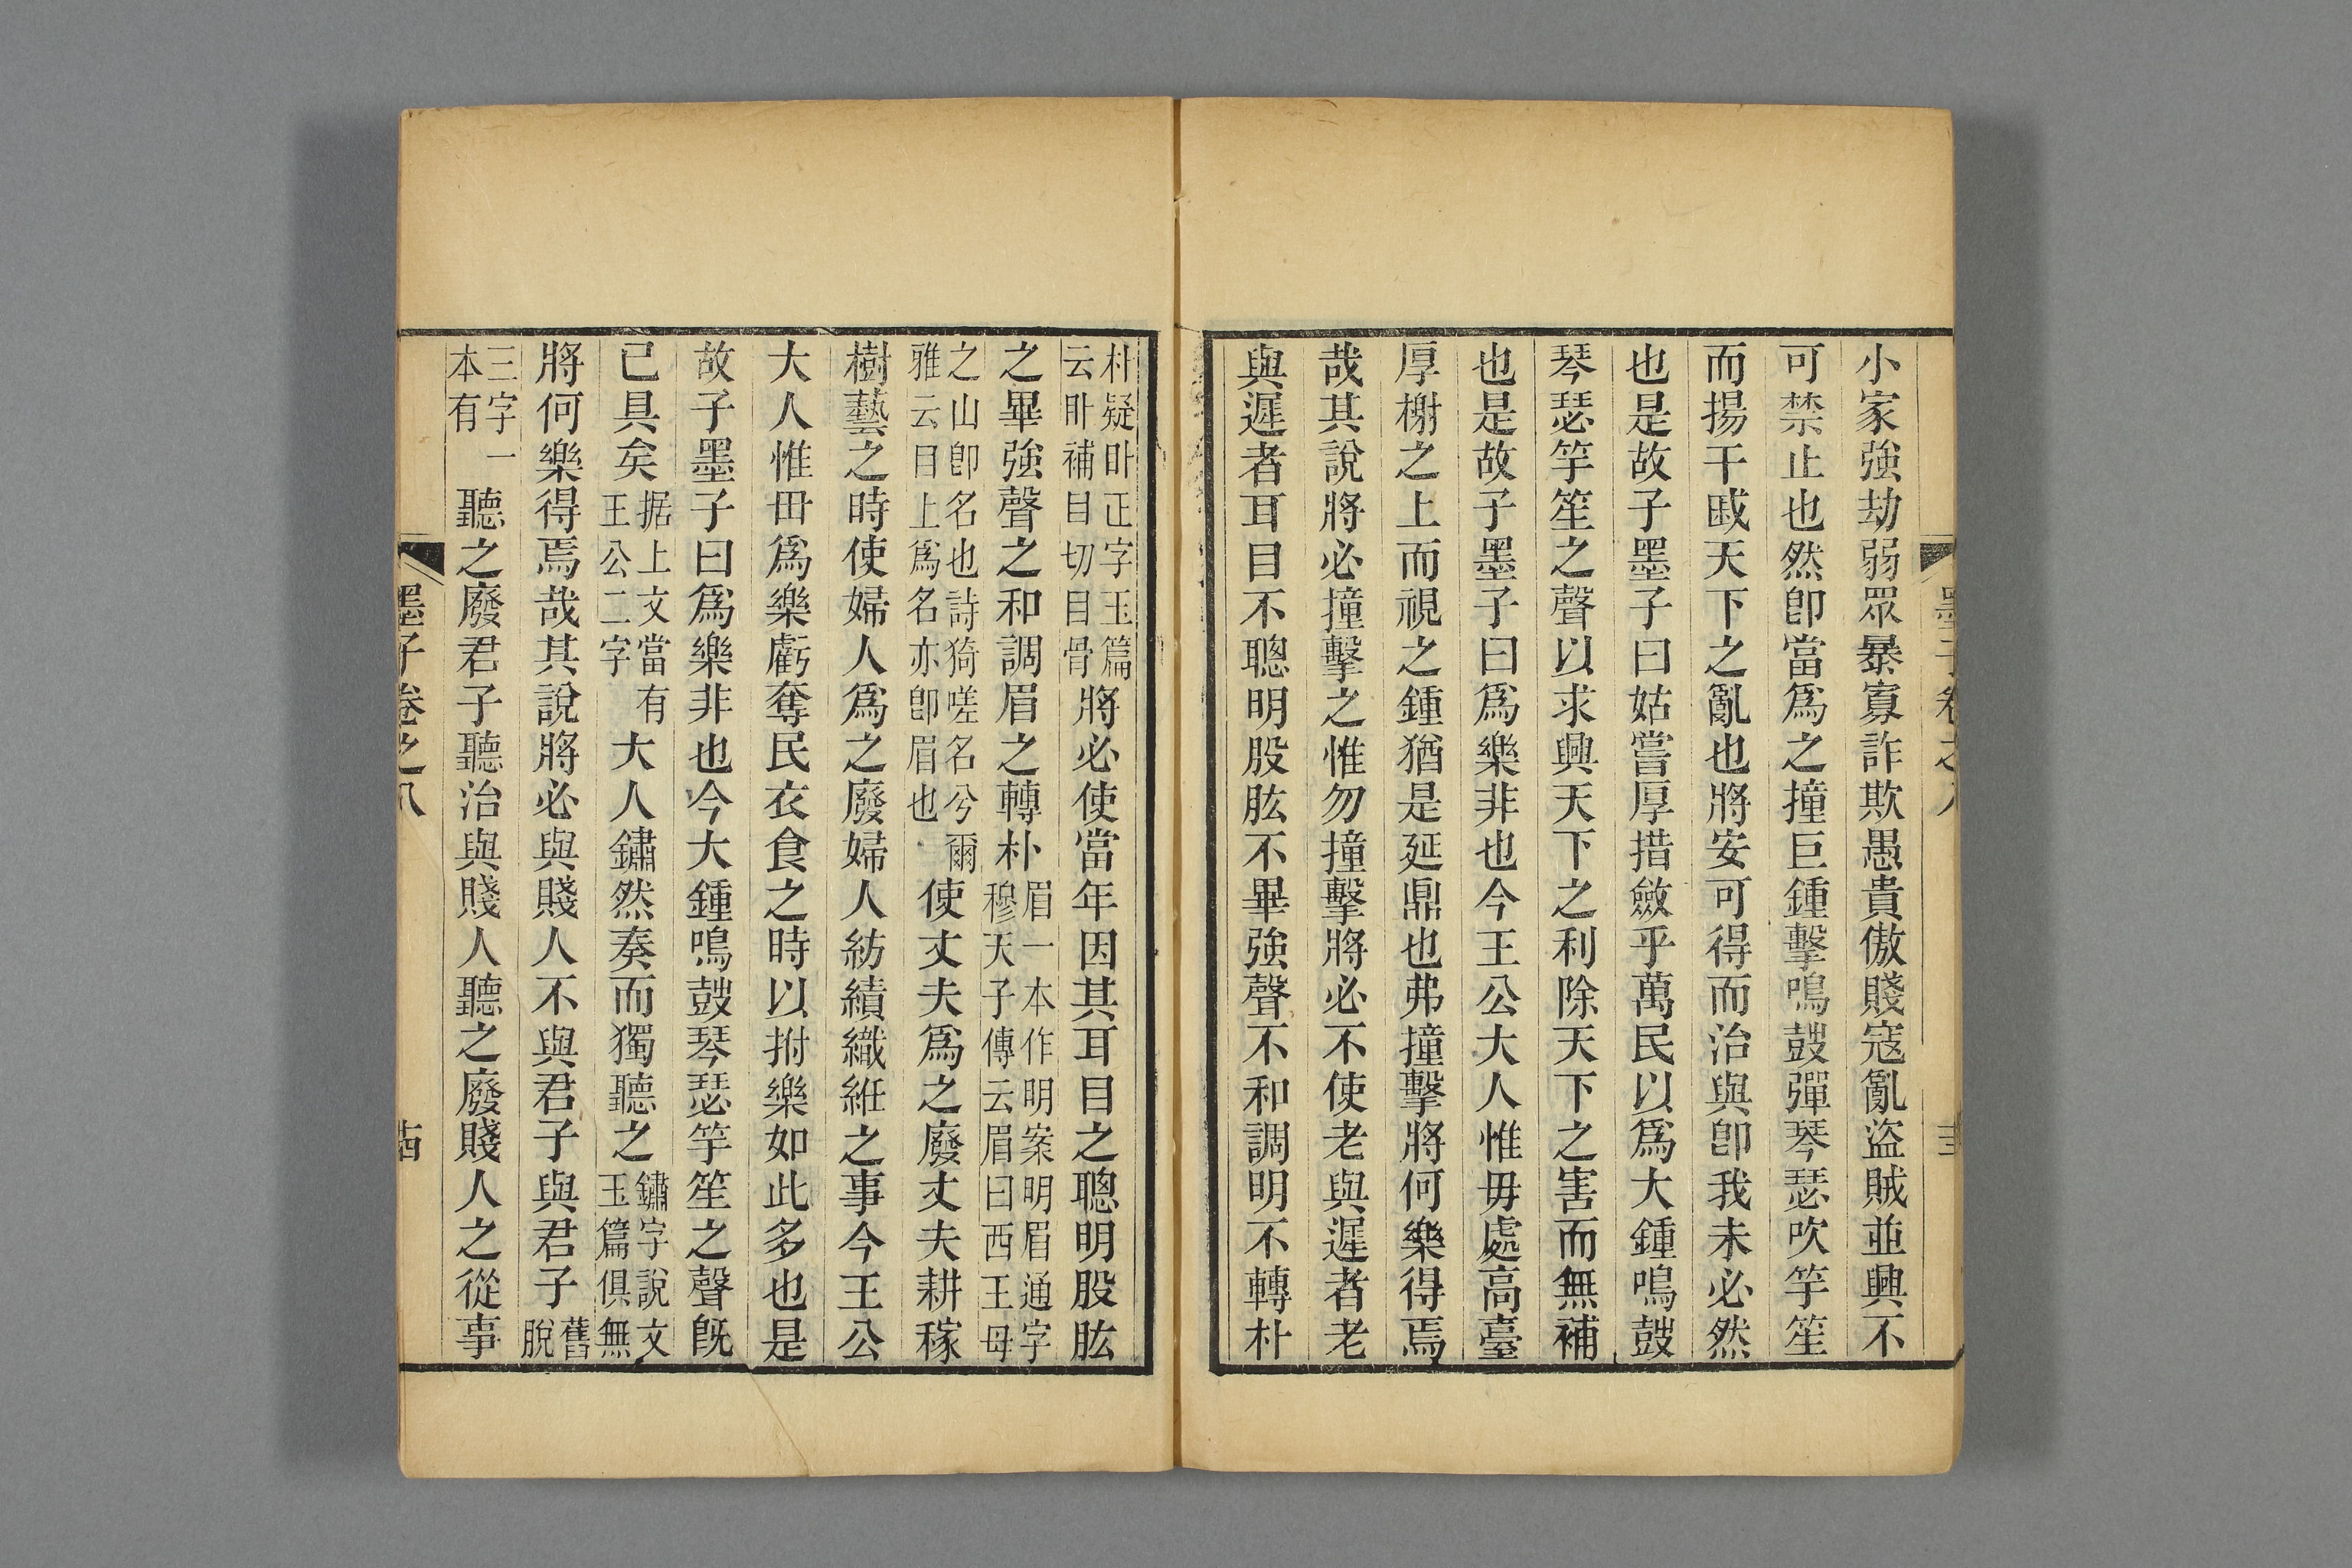 墨子卷之八
小家強劫弱眾暴寡詐欺愚貴傲賤寇亂盜賊並興不
可禁止也然卽當爲之撞巨鍾擊鳴鼓彈琴瑟吹竽笙
而揚干戚天下之亂也將安可得而治與卽我未必然
也是故子墨子曰姑嘗厚措斂乎萬民以爲大鍾鳴鼓
琴瑟竽笙之聲以求興天下之利除天下之害而無補
也是故子墨子曰爲樂非也今王公大人惟毋處高臺
厚榭之上而視之鍾猶是延鼎也弗撞擊將何樂得焉
哉其說將必撞擊之惟勿撞擊將必不使老與遲者老
與遲者耳目不聰明股肱不畢強聲不和調明不轉朴
朴疑正字玉篇云補目切目骨將必使當年因其耳目之聰明股肱
之畢強聲之和調眉之轉朴眉一本作明案明眉通字穆天子傳云眉曰西王母
之山卽名也詩猗嗟名兮爾雅云目上爲名亦卽眉也使丈夫爲之廢丈夫耕稼
樹藝之時使婦人爲之廢婦人紡績織絍之事今王公
大人惟毌爲樂虧奪民衣食之時以拊樂如此多也是
故子墨子曰爲樂非也今大鍾鳴鼓琴瑟竽笙之聲旣
已具矣据上文當有王公二字大人鏽然奏而獨聽之鏽字說文玉篇俱無
將何樂得焉哉其說將必與賤人不與君子與君子舊脫
三字一本有聽之廢君子聽治與賤人聽之廢賤人之從事
墨子卷之八